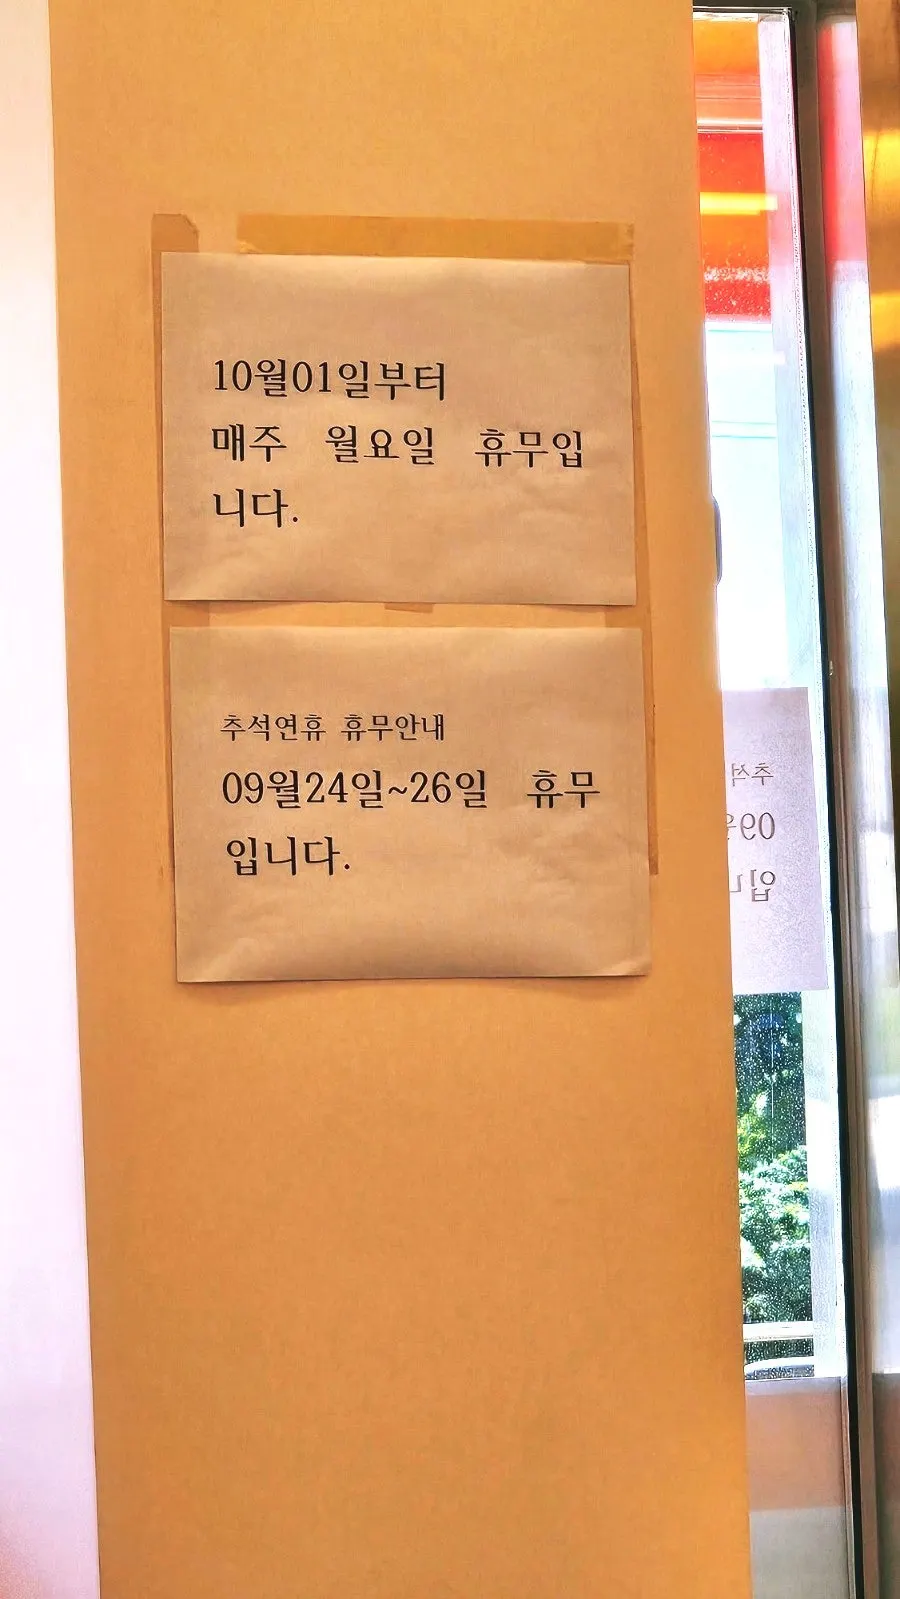 10월01일부터
매주 월요일 휴무입
니다.
추석연휴 휴무안내
09월24일~26일 휴무
입니다.
추석
09월
입니